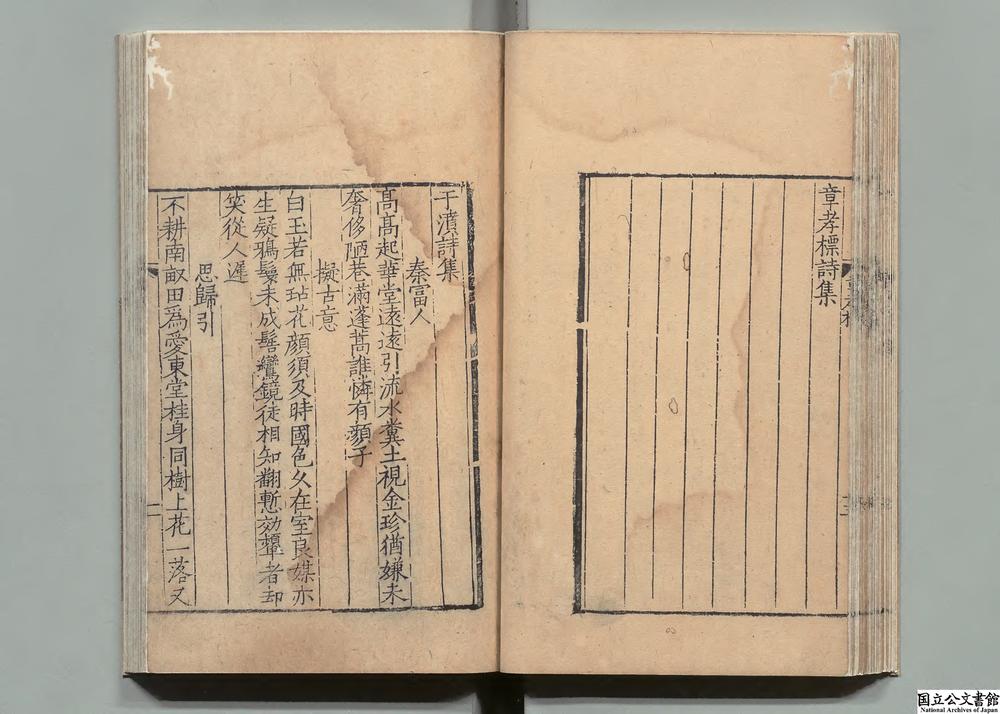 章孝標詩集
于濆詩集
秦富人
高高起華堂遠遠引流水糞土視金珍猶嫌未
奢侈陋巷滿蓬蒿誰憐有顏子
擬古意
白玉若無玷花顏須及時國色久在室良媒亦
生疑鴉鬟未成髻鸞鏡徒相知翻慙効顰者却
笑從人遲
思歸引
不耕南畝田爲愛東堂桂身同樹上花一落又
国立公文書館
National Archives of Japan